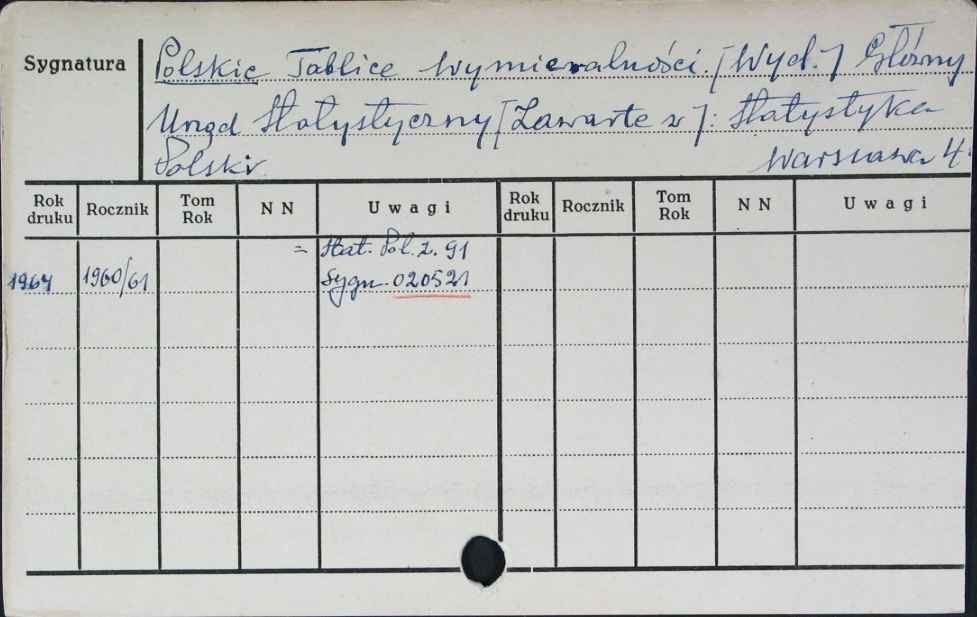 Sygnatura
Polskie Tablice Wymieralności. [Wyd.] Główny
Urząd Statystyczny [Zawarte w]: Statystyka
Polski. Warszawa 4°
Rok druku Rocznik Tom Rok N N Uwagi Rok druku Rocznik Tom Rok N N Uwagi
= Stat. Pol. z. 91
1964 1960/61 Sygn. 020521